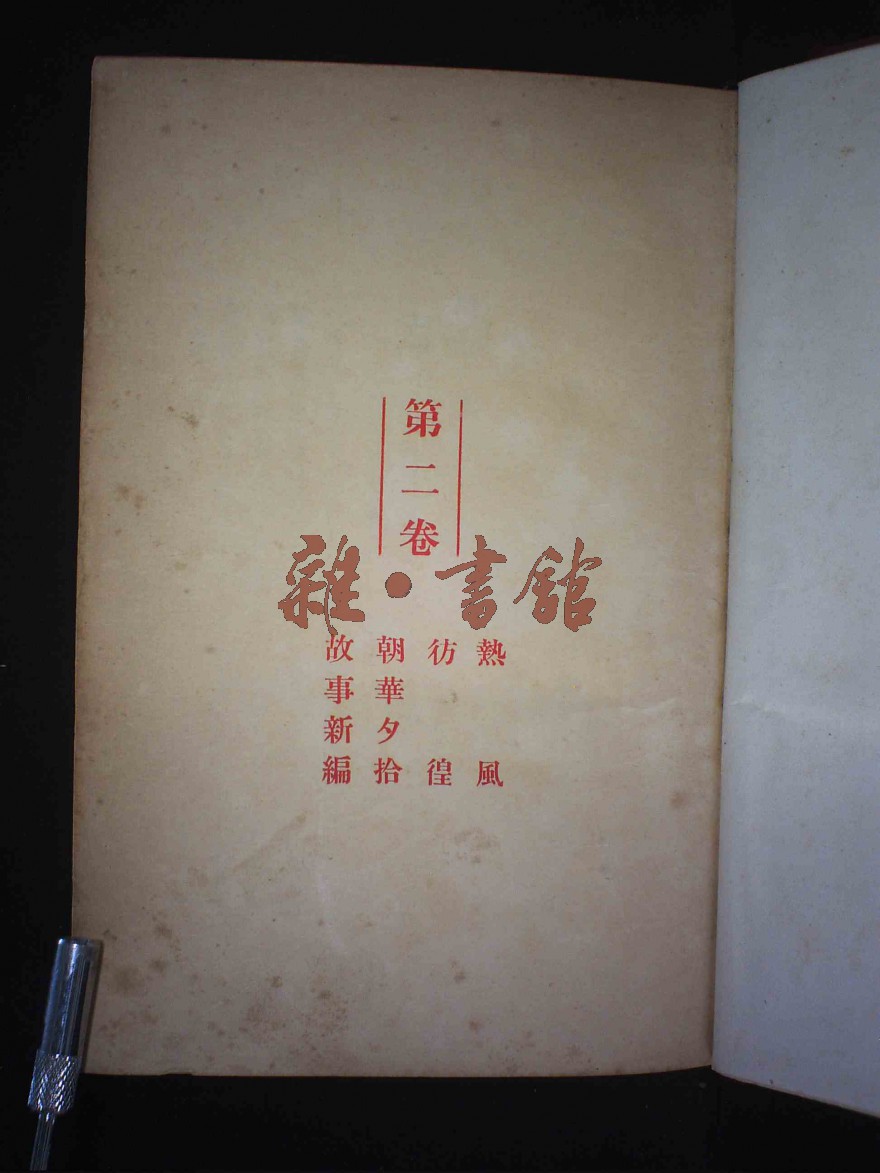 第二卷
雜·書館
熱風
彷徨
朝華夕拾
故事新編